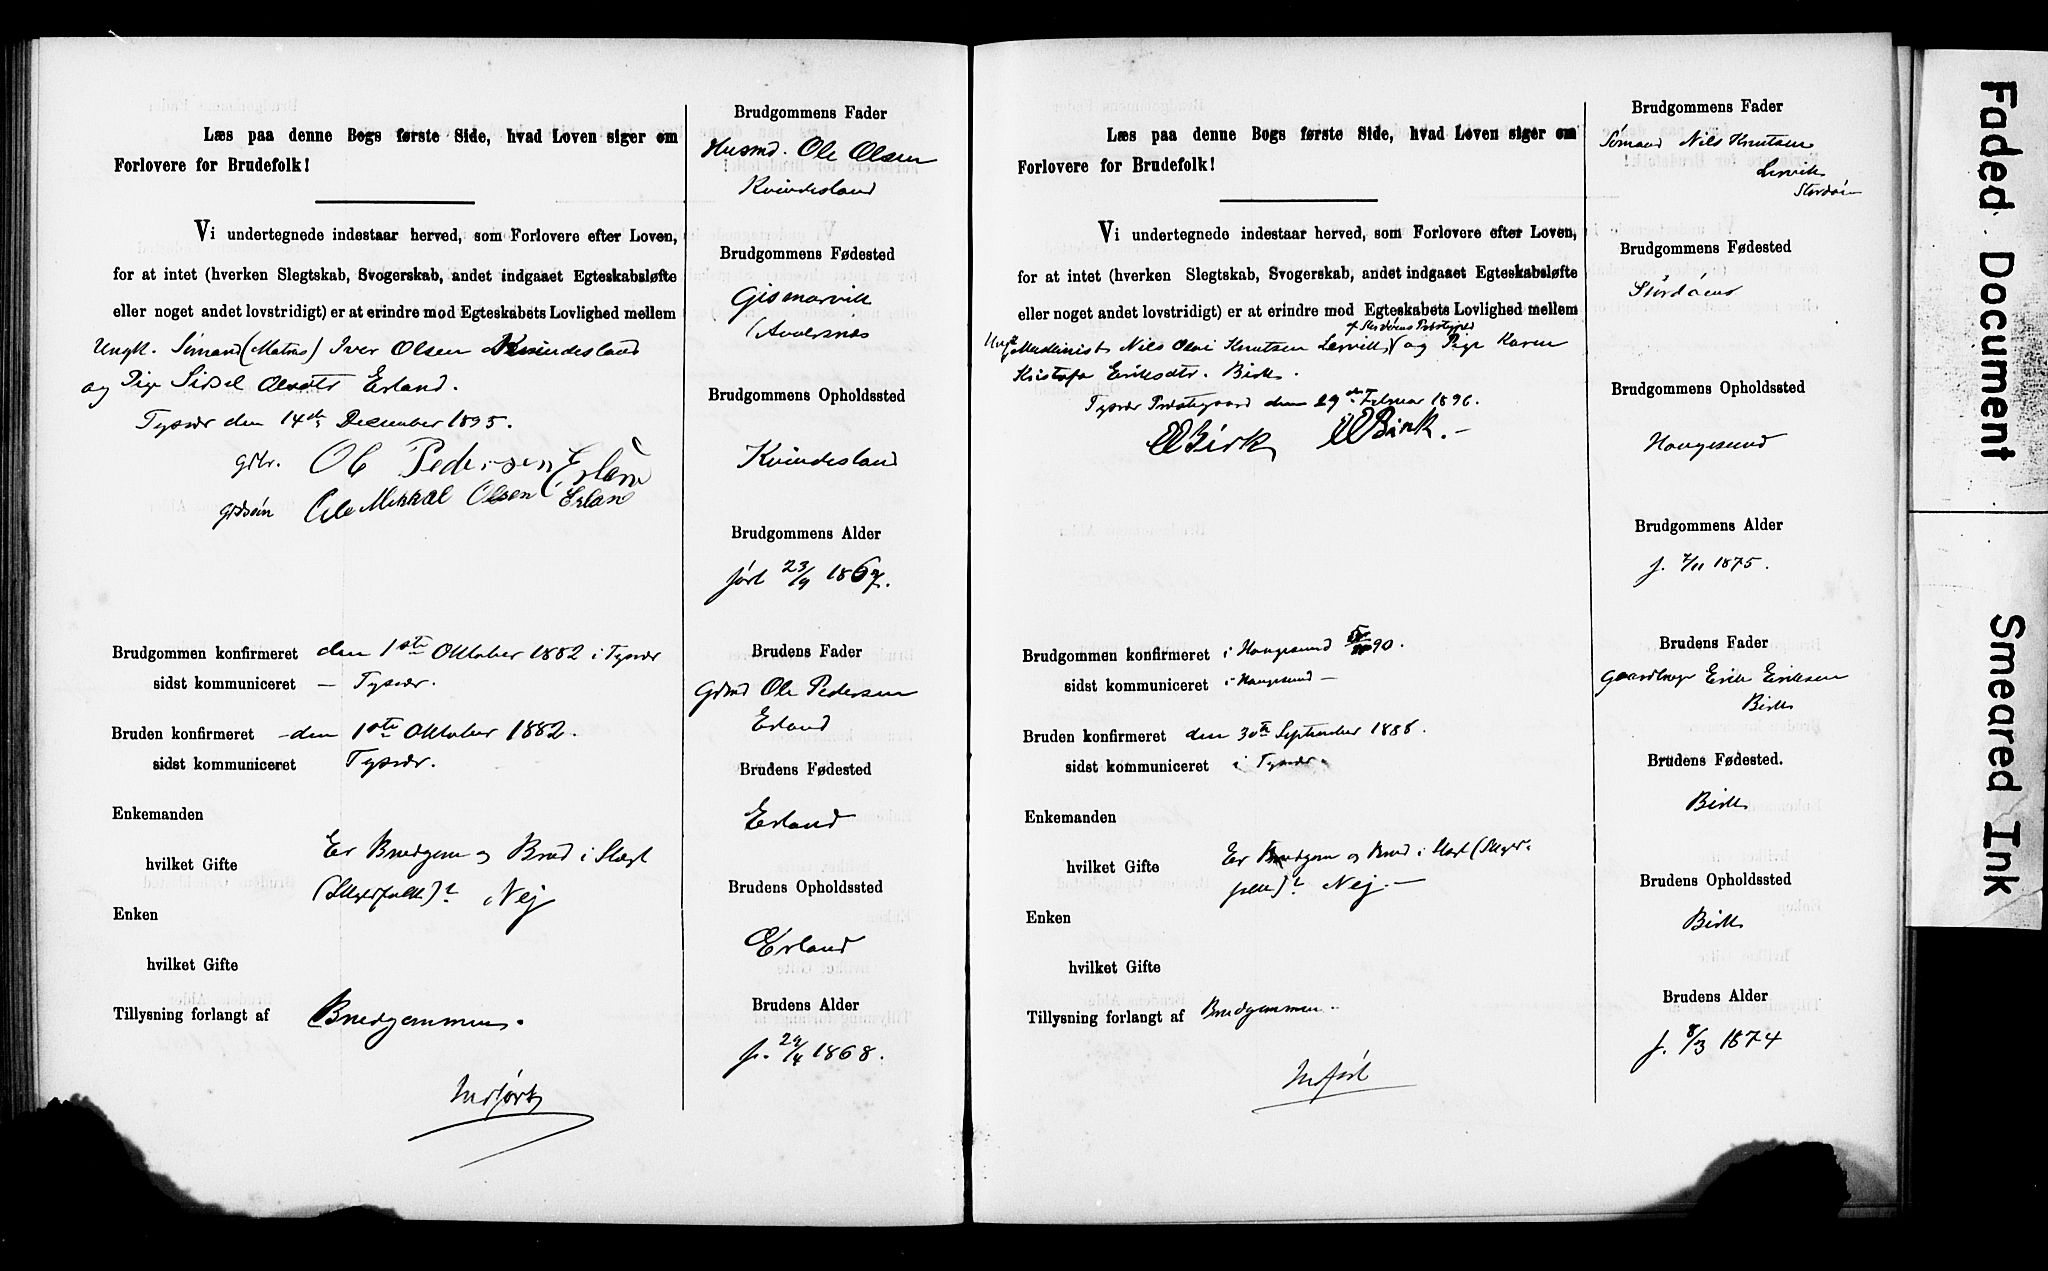 Læs paa denne Bogs første Side, hvad Loven siger om
Forlovere for Brudefolk!
Vi undertegnede indestaar herved, som Forlovere efter Loven,
for at intet (hverken Slegtskab, Svogerskab, andet indgaaet Egteskabsløfte
eller noget andet lovstridigt) er at erindre mod Egteskabets Lovlighed mellem
Ungk. Sømand (Matros) Iver Olsen Kvindesland
og Pige Sissel Olsdtr Erland.
Tysvær den 14de December 1895.
gdbr. Ole Pedersen Erland
gdsøn Ole Mikkal Olsen Erland
Brudgommen konfirmeret den 1ste Oktober 1882 i Tysvær
sidst kommuniceret - Tysvær.
Bruden konfirmeret - den 1ste Oktober 1882.
sidst kommuniceret Tysvær.
Enkemanden
hvilket Gifte Er Brudgom og Brud i Slægt
(Slegtfolk)? Nej
Enken
hvilket Gifte
Tillysning forlangt af Brudgommen.
Indført
Brudgommens Fader
Husmd. Ole Olsen
Kvindesland
Brudgommens Fødested
Gismarvik
Avaldsnes
Brudgommens Opholdssted
Kvindesland
Brudgommens Alder
født 23/9 1867.
Brudens Fader
Gdmd Ole Pedersen
Erland
Brudens Fødested
Erland
Brudens Opholdssted
Erland
Brudens Alder
f. 29/4 1868.
Læs paa denne Bogs første Side, hvad Loven siger om
Forlovere for Brudefolk!
Vi undertegnede indestaar herved, som Forlovere efter Loven,
for at intet (hverken Slegtskab, Svogerskab, andet indgaaet Egteskabsløfte
eller noget andet lovstridigt) er at erindre mod Egteskabets Lovlighed mellem
af Stordøens Præstegjeld
Ungk. Maskinist Nils Olai Knutsen Lervik og Pige Karen
Kristofa Eriksdtr. Birk.
Tysvær Præstegaard den 29de Februar 1896.
EE Birk OE Birk.
Brudgommen konfirmeret i Haugesund 90.
sidst kommuniceret i Haugesund -
Bruden konfirmeret den 30te September 1888.
sidst kommuniceret i Tysvær.
Enkemanden
hvilket Gifte Er Brudgom og Brud i Slægt (Slegt-
folk)? Nej. -
Enken
hvilket Gifte
Tillysning forlangt af Brudgommen.
Indført
Brudgommens Fader
Sømand Nils Knutsen
Lervik
Stordøen
Brudgommens Fødested
Stordøens
Brudgommens Opholdssted
Haugesund
Brudgommens Alder
f. 7/11 1875.
Brudens Fader
Gaardbruger Erik Eriksen
Birk
Brudens Fødested.
Birk
Brudens Opholdssted
Birk
Brudens Alder
f. 8/3 1874
Faded Document
Smeared Ink